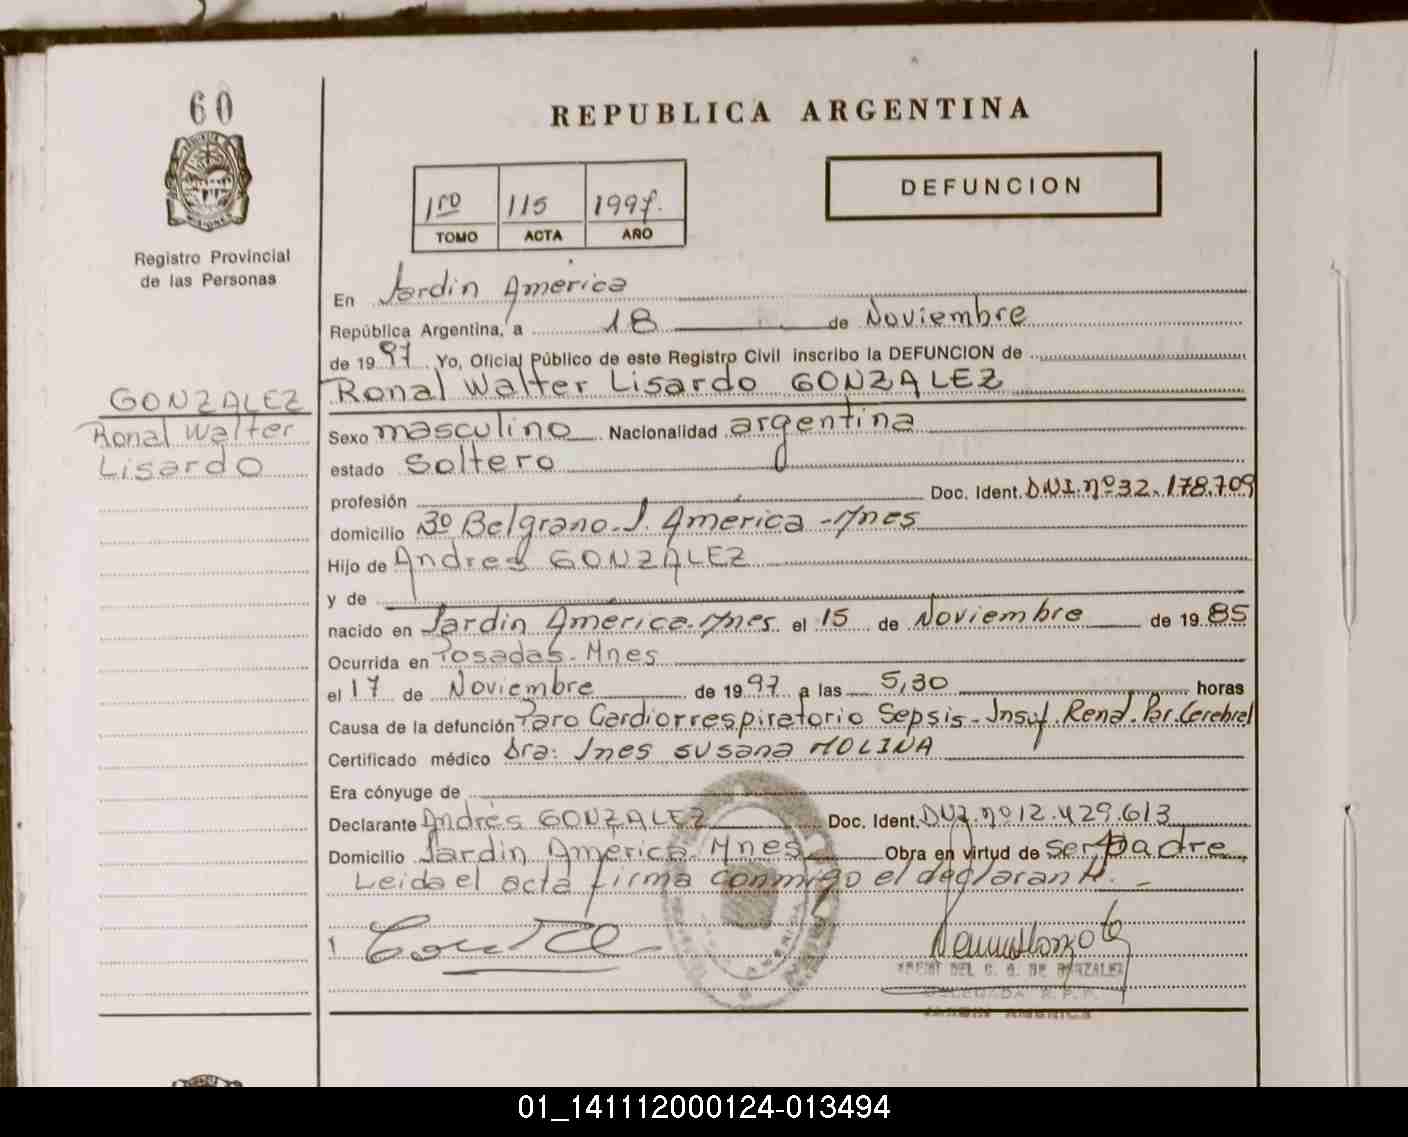 60
REPUBLICA ARGENTINA
DEFUNCION
1ro 115 1997.
TOMO ACTA AÑO
Registro Provincial
de las Personas
En Jardin América
República Argentina, a 18 de Noviembre
de 1997. Yo, Oficial Público de este Registro Civil inscribo la DEFUNCION de
Ronal Walter Lisardo GONZALEZ
GONZALEZ
Ronal Walter
Lisardo
Sexo masculino Nacionalidad argentina
estado Soltero
profesión Doc. Ident. DNI. nº 32.178.709
domicilio Bº Belgrano. J. América - Mnes
Hijo de Andres GONZALEZ
y de
nacido en Jardin America. Mnes el 15 de Noviembre de 1985
Ocurrida en Posadas - Mnes
el 17 de Noviembre de 1997 a las 5,30 horas
Causa de la defunción Paro Cardiorrespiratorio Sepsis - Insuf. Renal. Par. Cerebral
Certificado médico Dra: Ines Susana MOLINA
Era cónyuge de
Declarante Andrés GONZALEZ Doc. Ident. DNI. nº 12.429.613
Domicilio Jardin América. Mnes Obra en virtud de ser padre
Leida el acta firma conmigo el declarante.
DEL C. G. DE GONZALEZ
DELEGADA R.P.P.
JARDIN AMERICA
01_141112000124-013494